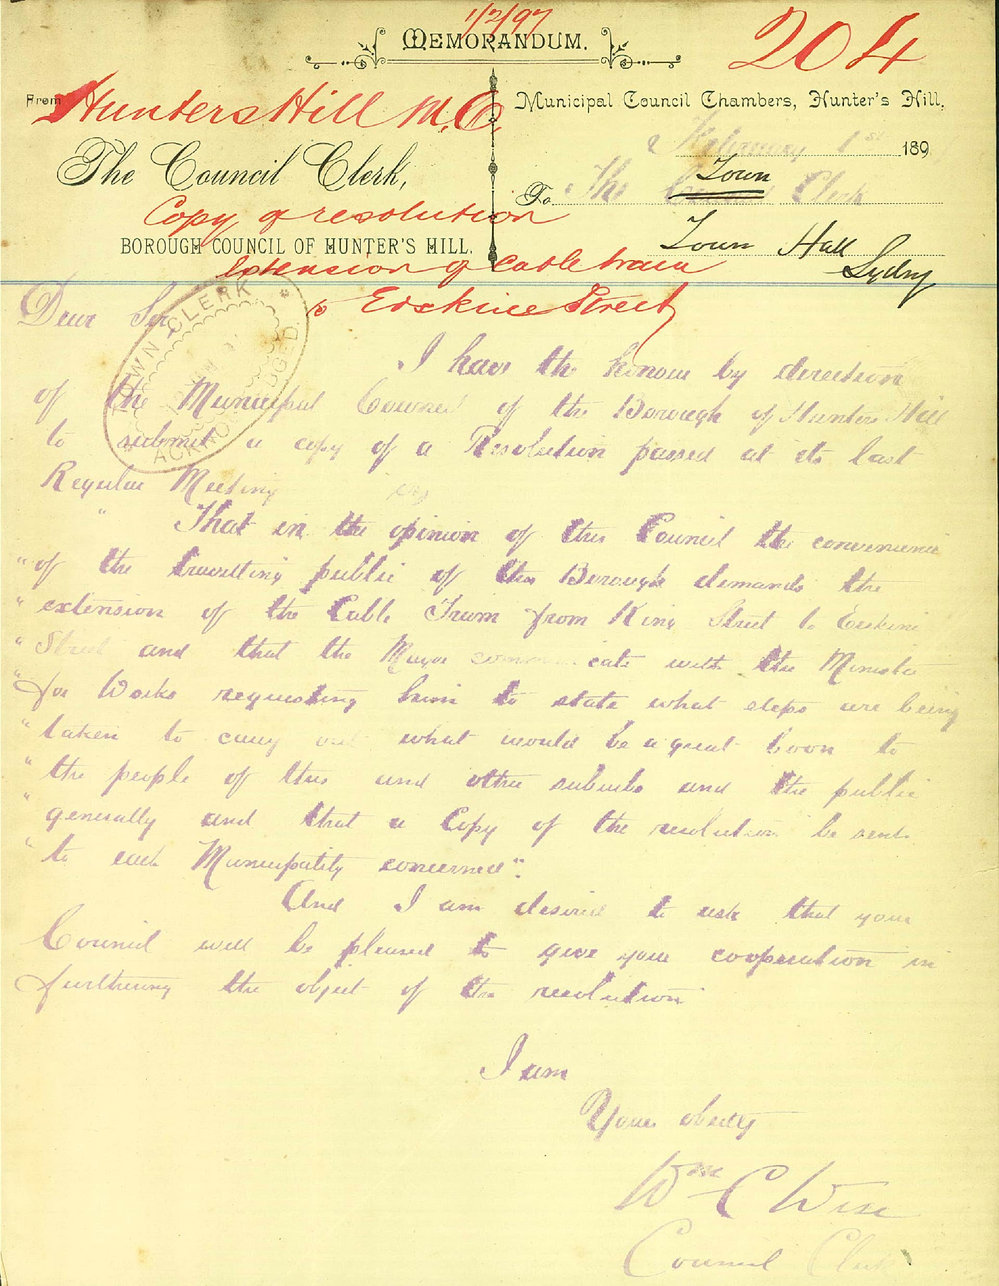 1/2/97
MEMORANDUM.
204
From Hunters Hill M.C.
Municipal Council Chambers, Hunter's Hill,
February 1st 189
The Council Clerk,
To The Council Clerk
Town
Copy of resolution
BOROUGH COUNCIL OF HUNTER'S HILL.
Town Hall
Sydny
extension of Cable tram
to Erskine Street
TOWN CLERK
ACKNOWLEDGED.
Dear Sir
I have the honour by direction
of the Municipal Council of the Borough of Hunters Hill
to submit a copy of a Resolution passed at its last
Regular Meeting
" That in the opinion of this Council the convenience
" of the travelling public of this Borough demands the
" extension of the Cable Tram from King Street to Erskine
" Street and that the Mayor communicate with the Minister
" for Works requesting him to state what steps are being
" taken to carry out what would be a great boon to
" the people of this and other suburbs and the public
" generally and that a Copy of the resolution be sent
" to each Municipality concerned".
And I am desired to ask that your
Council will be pleased to give your cooperation in
furthering the object of the resolution
I am
Your obedtly
Wm C Wise
Council Clerk